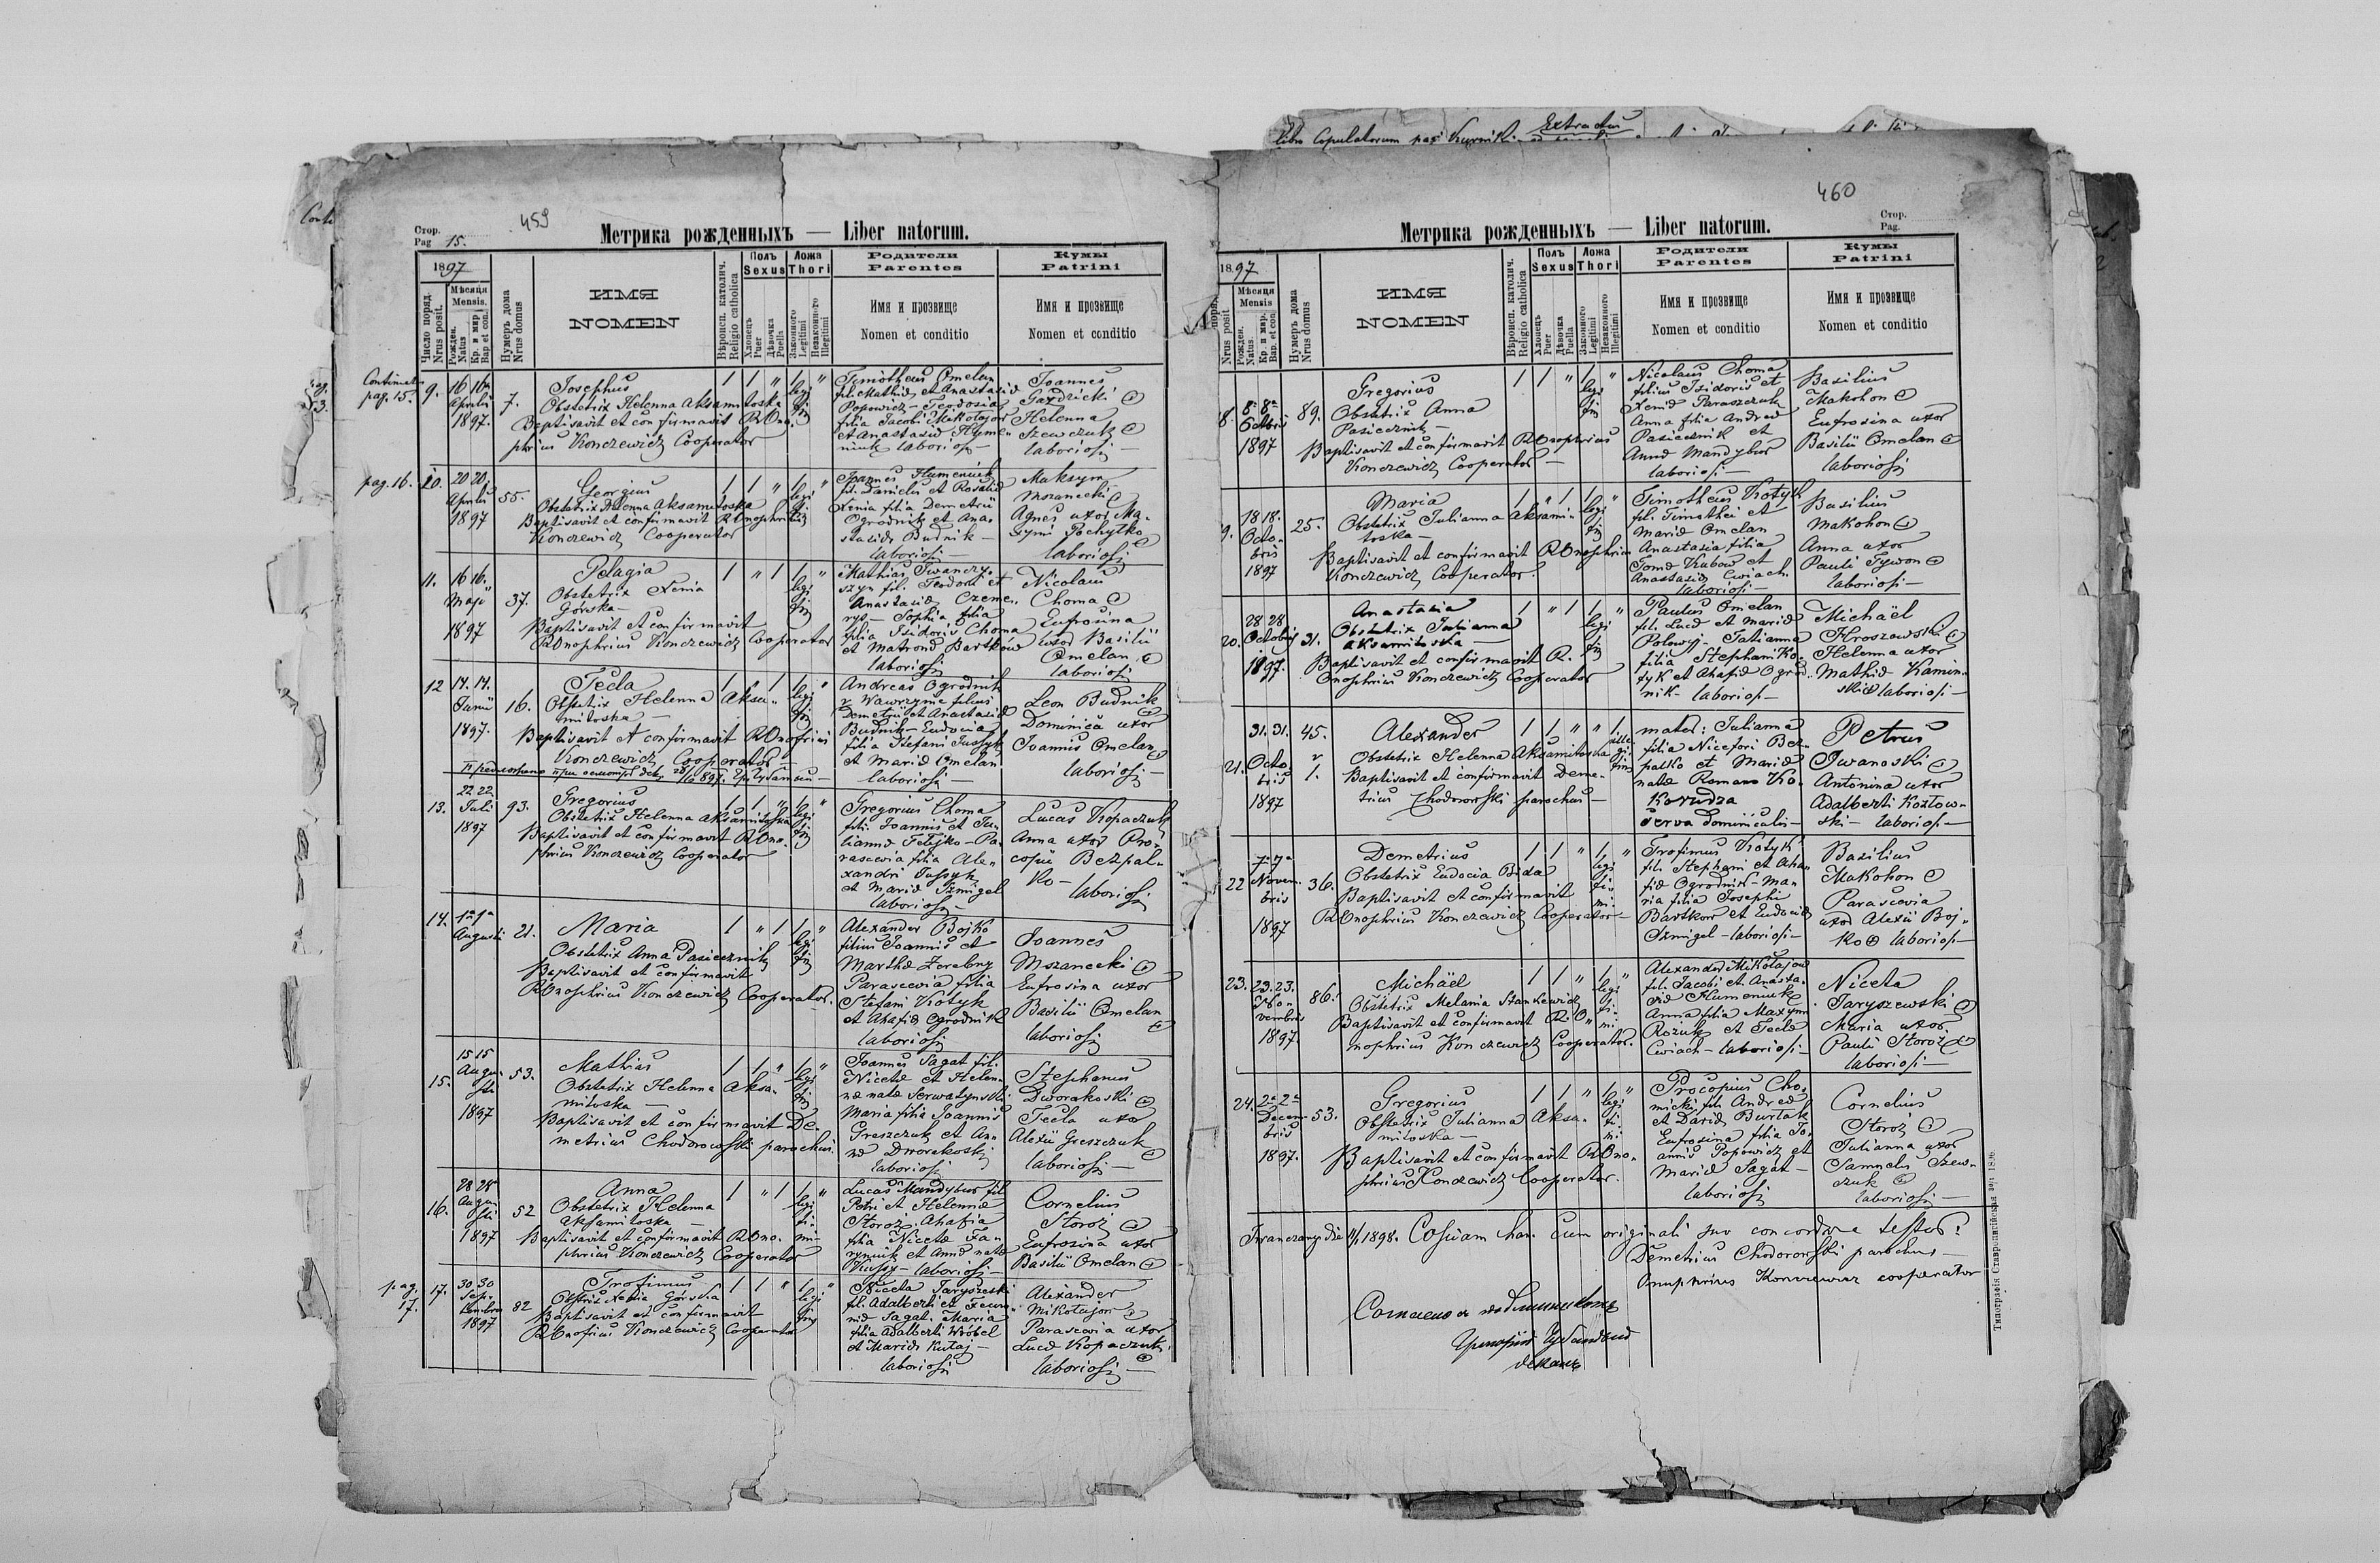 Extractus
libro Copulatorum
Стор.
Pag 15.
459
Метрика рожденныхъ — Liber natorum.
1897
Число поряд.
Nrus posit.
Мѣсяця
Mensis.
Рожден.
Natus
Кр. и мир.
Bap et con.
Нумеръ дома
Nrus domus
ИМЯ
NOMEN
Вѣроисп. католич.
Religio catholica
Полъ
Sexus
Хлопець
Puer
Дѣвочка
Puella
Ложа
Thori
Законного
Legitimi
Незаконного
Illegitimi
Родители
Parentes
Имя и прозвище
Nomen et conditio
Кумы
Patrini
Имя и прозвище
Nomen et conditio
pag. 15.
9.
16 16
Aprilis
1897.
7.
Josephus
Obstetrix Helenna Aksamitoska
Baptisavit et confirmavit R Ono-
phrius Konczewicz Cooperator
1 1 " 1 "
legi
ti
Tymotheus Omelan
fil. Mathiæ et Anastasiæ
Popowicz - Teodosia
filia Jacobi Mikołajow
et Anastasiæ Humen-
niuk laboriosi —
Joannes
Gazdzicki
Helenna
Szewczuk
laboriosi —
pag. 16.
10.
20 20.
Aprilis
1897
55.
Georgius
Obstetrix Helenna Aksamitoska
Baptisavit et confirmavit R Onophrius
Konczewicz Cooperator
1 1 " 1 "
Joannes Humeniuk
fil. Danielis et Rosaliæ
Xenia filia Demetrii
Ogrodnik et Ana-
stasiæ Budnik —
laboriosi —
Maksym
Mszanecki
Agnes uxor Ma-
xymi Pochytko
laboriosi
11.
16 16.
Maji
1897
37.
Pelagia
Obstetrix Xenia
Górska —
Baptisavit et confirmavit
R Onophrius Konczewicz Cooperator
1 " 1 1 "
Mathias Iwanczy-
szyn fil. Teodori et
Anastasiæ Czeme-
rys — Sophia filia
filia Isidoris Choma
et Matronæ Bartkow
laboriosi
Nicolaus
Choma
Eufrosina
uxor Basilii
Omelan
laboriosi
12
14. 14.
Junii
1897.
16.
Tecla
Obstetrix Helenna Aksa-
mitoska —
Baptisavit et confirmavit R Onofrius
Konczewicz Cooperator —
1 " 1 1 "
Andreas Ogrodnik
v. Wawrzyme filius
Demetrii et Anastasiæ
Budnik - Eudocia
filia Stefani Jussyk
et Mariæ Omelan
laboriosi —
Leon Budnik
Dominica uxor
Joannis Omelan
laboriosi —
13.
22 22
Juli
1897
93.
Gregorius
Obstetrix Helenna Aksamitoska
Baptisavit et confirmavit R Ono-
phrius Konczewicz Cooperator
1 1 " 1 "
Gregorius Choma
fil. Joannis et Ju-
liannæ Felejko - Pa-
rascevia filia Ale-
xandri Jussyk
et Mariæ Szmigel
laboriosi —
Lucas Kopaczuk
Anna uxor Pro-
copii Bezpal-
ko —
laboriosi
14.
1ª 1ª
Augusti
21.
Maria
Obstetrix Anna Pasiecznik
Baptisavit et confirmavit
R Onophrius Konczewicz Cooperator.
1 " 1 1 "
Alexander Bojko
filius Joannis et
Marthæ Zerebny
Parascevia filia
Stefani Kotyk
et Ahafiæ Ogrodnik
laboriosi
Joannes
Mszanecki
Eufrosina uxor
Basilii Omelan
laboriosi
15.
15 15
Augu-
sti
1897
53.
Mathias
Obstetrix Helenna Aksa-
mitoska —
Baptisavit et confirmavit De-
metrius Chodorowski parochus.
1 1 " 1 "
Joannes Sagat fil.
Nicetæ et Helen-
næ natæ Serwatynski
Maria filia Joannis
Greszczuk et An-
næ Dworakoski
laboriosi
Stephanus
Dworakoski
Tecla uxor
Alexii Greszczuk
laboriosi —
16.
28 28
Augu-
sti
1897
52
Anna
Obstetrix Helenna
Aksamitoska —
Baptisavit et confirmavit R Ono-
phrius Konczewicz Cooperator
1 " 1 1 "
Lucas Mandybur fil.
Petri et Helennæ
Storoż. Ahafia
filia Nicetæ
et Annæ natæ
laboriosi —
Cornelius
Storoż
Eufrosina uxor
Basilii Omelan
pag.
17.
17.
30 30
Sep-
tembris
1897
82
Trofimus
Obstetrix Xenia Górska
Baptisavit et confirmavit
R Onofrius Konczewicz Cooperator
1 1 " 1 "
Niceta Jaryszeski
fil. Adalberti et
Sagat. Maria
filia Adalberti Wróbel
et Mariæ Kutaj —
laboriosi
Alexander
Mikołajow
Parascevia uxor
Lucæ Kopaczuk
laboriosi —
460
Стор.
Pag.
Метрика рожденныхъ — Liber natorum.
1897
поряд.
Nrus posit.
Мѣсяця
Mensis
Рожден.
Natus.
Кр. и мир.
Bap. et con.
Нумеръ дома
Nrus domus
ИМЯ
NOMEN
Вѣроисп. католич.
Religio catholica
Полъ
Sexus
Хлопець
Puer
Дѣвочка
Puella
Ложа
Thori
Законного
Legitimi
Незаконного
Illegitimi
Родители
Parentes
Имя и прозвище
Nomen et conditio
Кумы
Patrini
Имя и прозвище
Nomen et conditio
8.
8ª 8ª
Octbris
1897
89.
Gregorius
Obstetrix Anna
Pasiecznik —
Baptisavit et confirmavit R Onophrius
Konczewicz Cooperator —
1 1 " 1 "
Nicolaus Choma
filius Isidoris et
Xeniæ Paraszczuk
Anna filia Andreæ
Pasiecznik et
Annæ Mandybur
laboriosi —
Basilius
Makohon
Eufrosina uxor
Basilii Omelan
laboriosi
9.
18 18.
Octo-
bris
1897
25.
Maria
Obstetrix Julianna Aksami-
toska —
Baptisavit et confirmavit R Onophrius
Konczewicz Cooperator.
1 " 1 1 "
Timotheus Kotyk
fil. Timothei et
Mariæ Omelan
Anastasia filia
Tomæ Kubow et
Anastasiæ Cwiach
laboriosi —
Basilius
Makohon
Anna uxor
Pauli Tywon
laboriosi —
20.
28 28
Octobris
1897.
31.
Anastasia
Obstetrix Julianna
Aksamitoska —
Baptisavit et confirmavit R.
Onophrius Konczewicz Cooperator
1 " 1 1 "
Paulus Omelan
fil. Lucæ et Mariæ
Polowy - Tatianna
filia Stephani Ko-
tyk et Ahafiæ Ogrod-
nik laboriosi —
Michaël
Hroszowski
Helenna uxor
Mathiæ Kamin-
ski laboriosi —
21.
31. 31.
Octo-
bris
1897
45.
1.
Alexander
Obstetrix Helenna Aksamitoska
Baptisavit et confirmavit Deme-
trius Chodorowski parochus —
1 1 " " 1
mater: Julianna
filia Nicefori Bez-
palko et Mariæ
natæ Romano Ko-
korudza
serva dominicalis —
Petrus
Iwanoski
Antonina uxor
Adalberti Kozłow-
ski — laboriosi —
22
7ª 7ª
Novem-
bris
1897
36.
Demetrius
Obstetrix Eudocia Bida
Baptisavit et confirmavit
R Onophrius Konczewicz Cooperator —
1 1 " 1 "
legi
ti-
mi.
Trofimus Kotyk
fil. Stephani et Aha-
fiæ Ogrodnik - Ma-
ria filia Josephi
Bartkow et Eudociæ
Szmigel — laboriosi —
Basilius
Makohon
Parascevia
uxor Alexii Boj-
ko laboriosi —
23.
23. 23.
No-
vembris
1897.
86.
Michaël
Obstetrix Melania Stankewicz
Baptisavit et confirmavit R. O-
nophrius Konczewicz Cooperator.
1 1 " 1 "
legi
ti-
mi
Alexander Mikołajow
fil. Jacobi et Anasta-
siæ Humeniuk
Anna filia Maxymi
Rozuk et Teclæ
Cwiach — laboriosi —
Niceta
Jaryszewski
Maria uxor
Pauli Storoż
laboriosi —
24.
2ª 2ª
Decem-
bris
1897.
53.
Gregorius
Obstetrix Julianna Aksa-
mitoska —
Baptisavit et confirmavit R Ono-
phrius Konczewicz Cooperator.
1 1 " 1 "
legi
ti-
mi
Procopius Cho-
micki fil. Andreæ
et Dariæ Burlak
Eufrosina filia Jo-
annis Popowicz et
Mariæ Sagat —
laboriosi
Cornelius
Storoż
Julianna uxor
Samuelis Szew-
czuk
laboriosi —
1898. Copiam hanc cum originali suo concordare testor:
Demetrius Chodorowski parochus —
Onuphrius Konczewicz cooperator
Типографія Ставропигійская 1896.